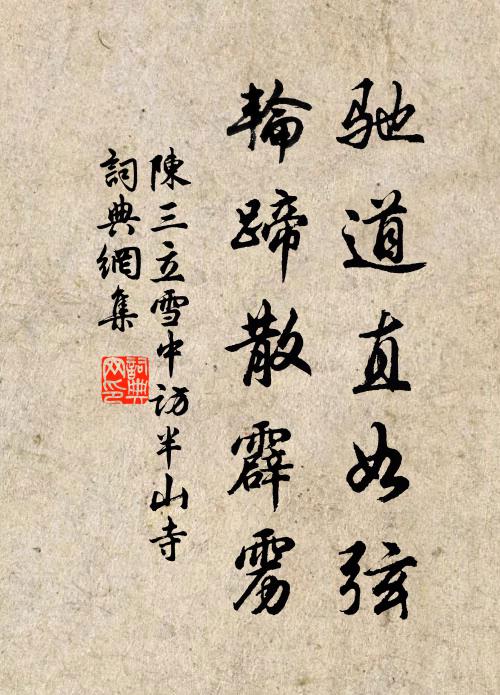 馳道直如弦
輪蹄散霹雳
陳三立雪中訪半山寺
詞典網集
詞典
网印